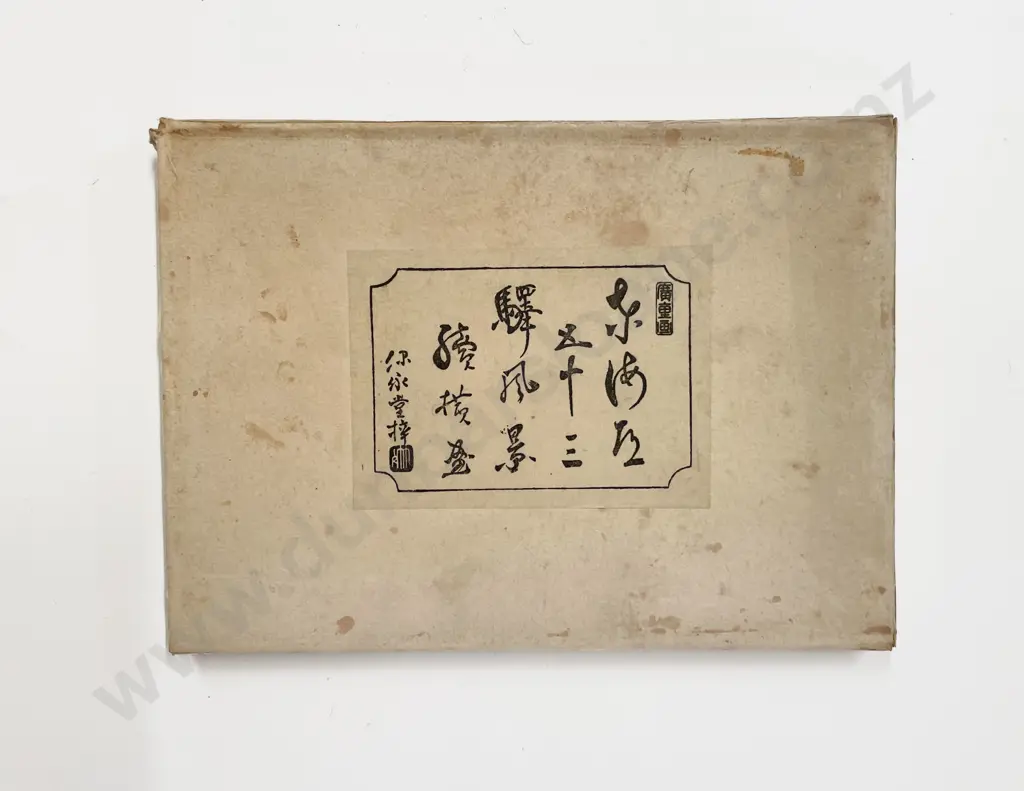 廣重画
東海道
五十三
驛風景
續横畫
保永堂梓
www.dunbarsloane.co.nz